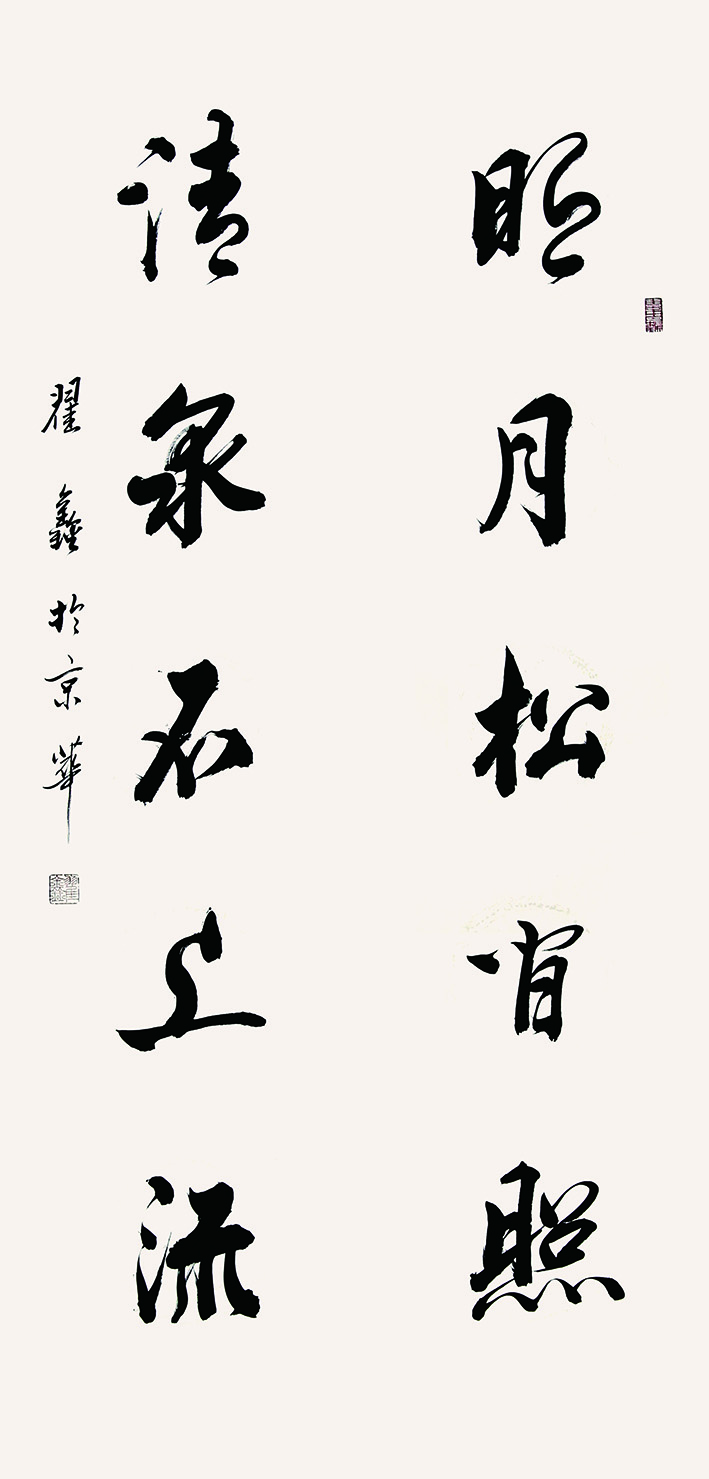 明月松间照
清泉石上流
翟鑫於京華